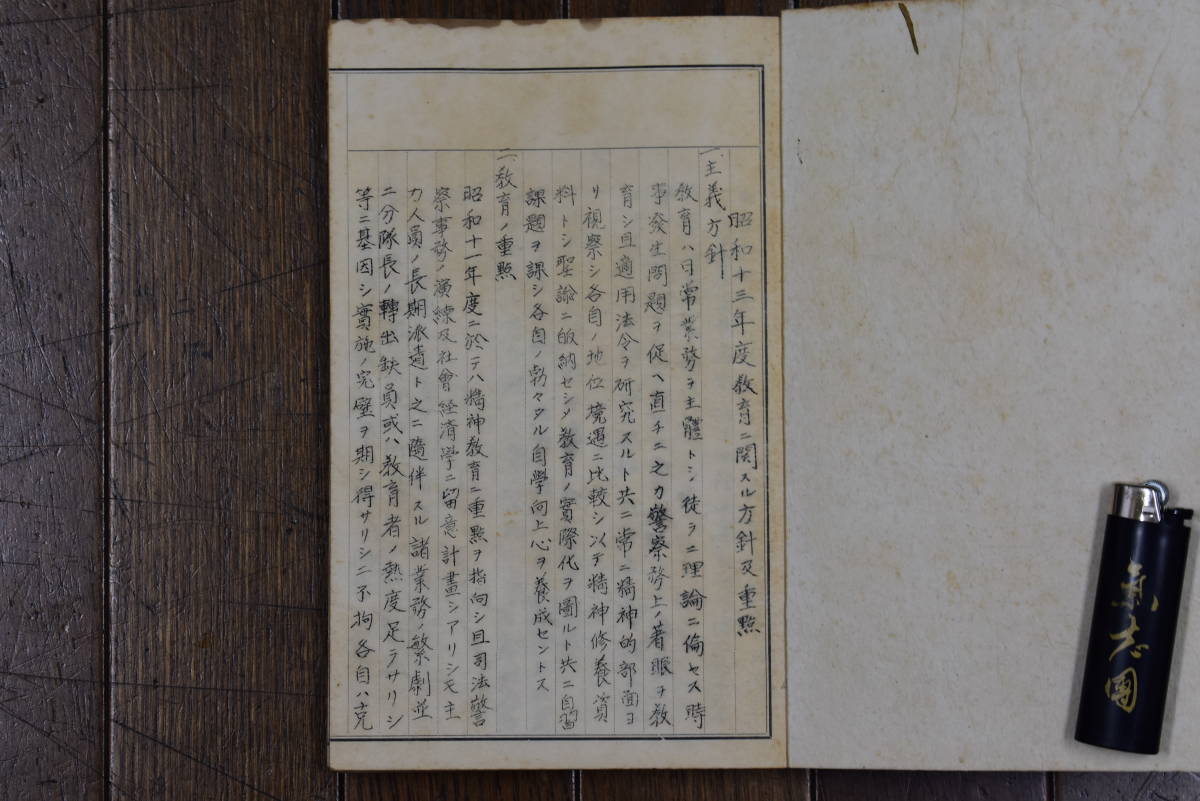 昭和十三年度教育ニ関スル方針及重點
一、主義方針
教育ハ日常業務ヲ主體トシ徒ラニ理論ニ倫セス時
事発生問題ヲ促ヘ直チニ之カ警察務上ノ著眼ヲ教
育シ且適用法令ヲ研究スルト共ニ常ニ精神的部面ヨ
リ視察シ各自ノ地位境遇ニ比較シ以テ精神修養資
料トシ聖諭ニ的納セシメ教育ノ實際化ヲ圖ルト共ニ自習
課題ヲ課シ各自ノ勃々タル自学向上心ヲ養成セントス
二、教育ノ重點
昭和十一年度ニ於テハ精神教育ニ重點ヲ指向シ且司法警
察事務ノ演練及社會経済学ニ留意計畫シアリシモ主
力人員ノ長期派遣ト之ニ隨伴スル諸業務ノ繁劇並
ニ分隊長ノ轉出缺員或ハ教育者ノ熱度足ラサリシ
等ニ基因シ實施ノ完璧ヲ期シ得サリシニ不拘各自ハ克
氣志團